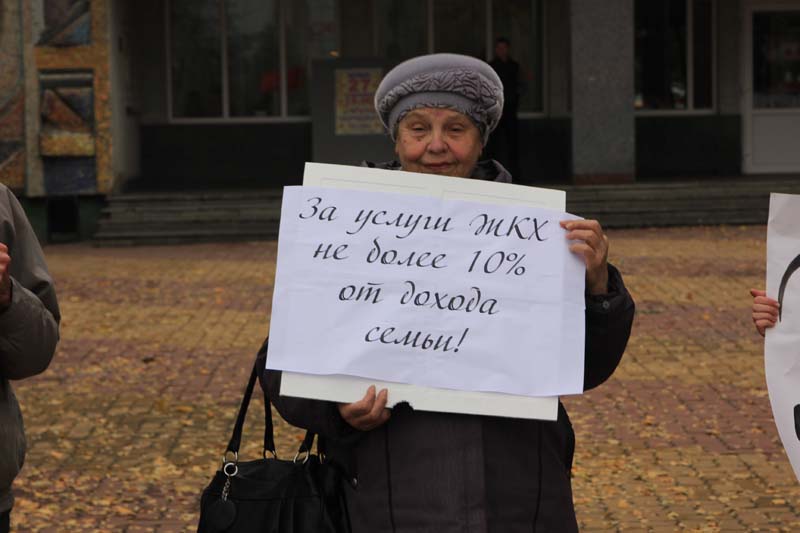 За услуги ЖКХ
не более 10%
от дохода
семьи!
27